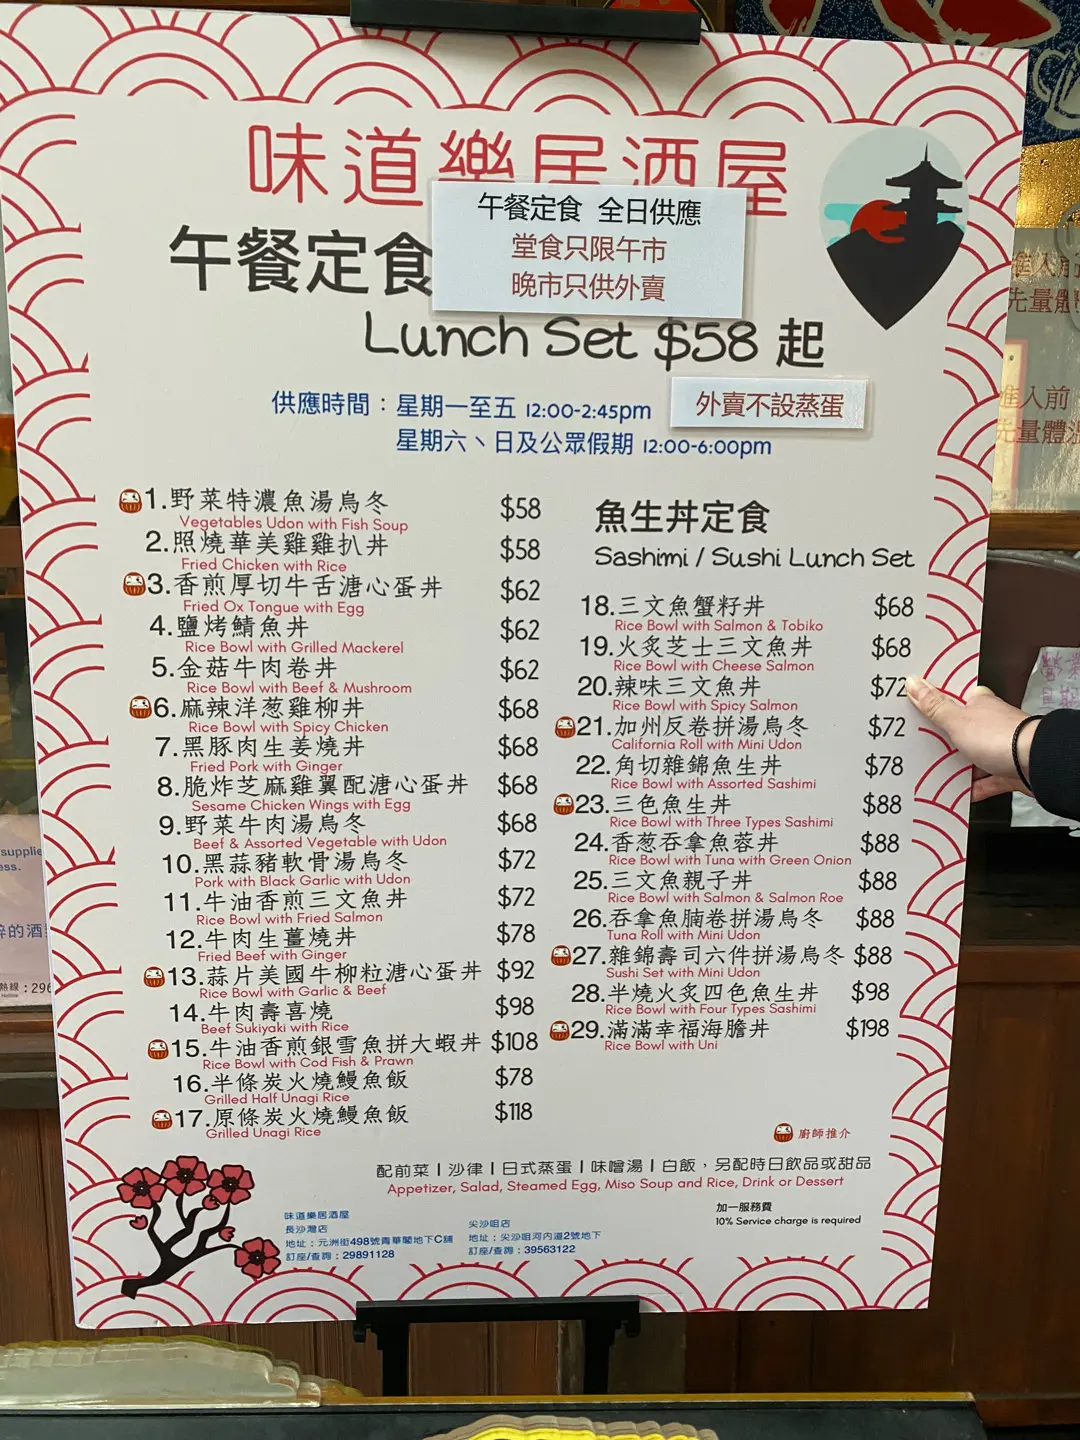 味道樂居酒屋
午餐定食 全日供應
堂食只限午市
晚市只供外賣
午餐定食
Lunch Set $58 起
外賣不設蒸蛋
供應時間：星期一至五 12:00-2:45pm
星期六、日及公眾假期 12:00-6:00pm
1.野菜特濃魚湯烏冬 $58
Vegetables Udon with Fish Soup
2.照燒華美雞雞扒丼 $58
Fried Chicken with Rice
3.香煎厚切牛舌溏心蛋丼 $62
Fried Ox Tongue with Egg
4.鹽烤鯖魚丼 $62
Rice Bowl with Grilled Mackerel
5.金菇牛肉卷丼 $62
Rice Bowl with Beef & Mushroom
6.麻辣洋葱雞柳丼 $68
Rice Bowl with Spicy Chicken
7.黑豚肉生姜燒丼 $68
Fried Pork with Ginger
8.脆炸芝麻雞翼配溏心蛋丼 $68
Sesame Chicken Wings with Egg
9.野菜牛肉湯烏冬 $68
Beef & Assorted Vegetable with Udon
10.黑蒜豬軟骨湯烏冬 $72
Pork with Black Garlic with Udon
11.牛油香煎三文魚丼 $72
Rice Bowl with Fried Salmon
12.牛肉生薑燒丼 $78
Fried Beef with Ginger
13.蒜片美國牛柳粒溏心蛋丼 $92
Rice Bowl with Garlic & Beef
14.牛肉壽喜燒 $98
Beef Sukiyaki with Rice
15.牛油香煎銀雪魚拼大蝦丼 $108
Rice Bowl with Cod Fish & Prawn
16.半條炭火燒鰻魚飯 $78
Grilled Half Unagi Rice
17.原條炭火燒鰻魚飯 $118
Grilled Unagi Rice
魚生丼定食
Sashimi / Sushi Lunch Set
18.三文魚蟹籽丼 $68
Rice Bowl with Salmon & Tobiko
19.火炙芝士三文魚丼 $68
Rice Bowl with Cheese Salmon
20.辣味三文魚丼 $72
Rice Bowl with Spicy Salmon
21.加州反卷拼湯烏冬 $72
California Roll with Mini Udon
22.角切雜錦魚生丼 $78
Rice Bowl with Assorted Sashimi
23.三色魚生丼 $88
Rice Bowl with Three Types Sashimi
24.香葱吞拿魚蓉丼 $88
Rice Bowl with Tuna with Green Onion
25.三文魚親子丼 $88
Rice Bowl with Salmon & Salmon Roe
26.吞拿魚腩卷拼湯烏冬 $88
Tuna Roll with Mini Udon
27.雜錦壽司六件拼湯烏冬 $88
Sushi Set with Mini Udon
28.半燒火炙四色魚生丼 $98
Rice Bowl with Four Types Sashimi
29.滿滿幸福海膽丼 $198
Rice Bowl with Uni
廚師推介
配前菜 | 沙律 | 日式蒸蛋 | 味噌湯 | 白飯，另配時日飲品或甜品
Appetizer, Salad, Steamed Egg, Miso Soup and Rice, Drink or Dessert
加一服務費
10% Service charge is required
味道樂居酒屋
長沙灣店
地址：元洲街498號青華閣地下C舖
訂座/查詢：29891128
尖沙咀店
地址：尖沙咀河內道2號地下
訂座/查詢：39563122
進入前
先量體
進入前
先量體溫